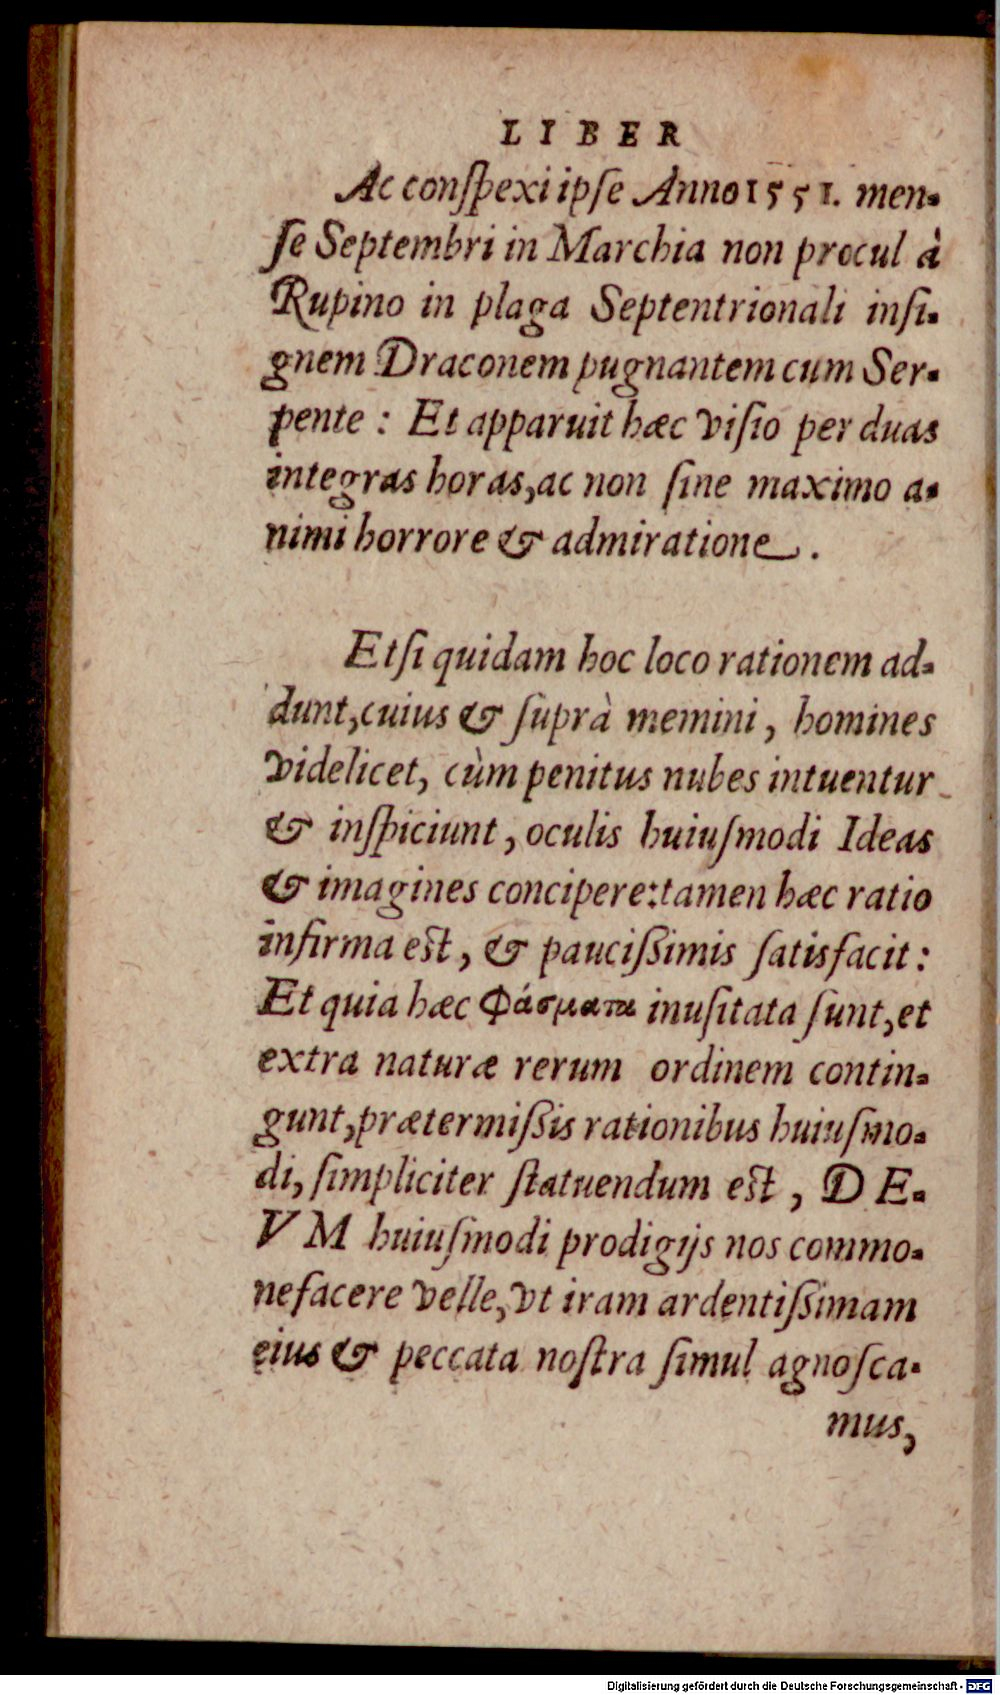 LIBER
Ac conſpexi ipſe Anno 1551. men-
ſe Septembri in Marchia non procul à
Rupino in plaga Septentrionali inſi-
gnem Draconem pugnantem cum Ser-
pente: Et apparuit hæc viſio per duas
integras horas, ac non ſine maximo a-
nimi horrore & admiratione.
Etſi quidam hoc loco rationem ad-
dunt, cuius & ſuprà memini, homines
videlicet, cùm penitus nubes intuentur
& inſpiciunt, oculis huiuſmodi Ideas
& imagines concipere: tamen hæc ratio
infirma eſt, & pauciſſimis ſatisfacit:
Et quia hæc Φάσματα inuſitata ſunt, et
extra naturæ rerum ordinem contin-
gunt, prætermiſſis rationibus huiuſmo-
di, ſimpliciter ſtatuendum eſt, DE-
VM huiuſmodi prodigijs nos commo-
nefacere velle, vt iram ardentiſſimam
eius & peccata noſtra ſimul agnoſca-
mus,
Digitalisierung gefördert durch die Deutsche Forschungsgemeinschaft - DFG